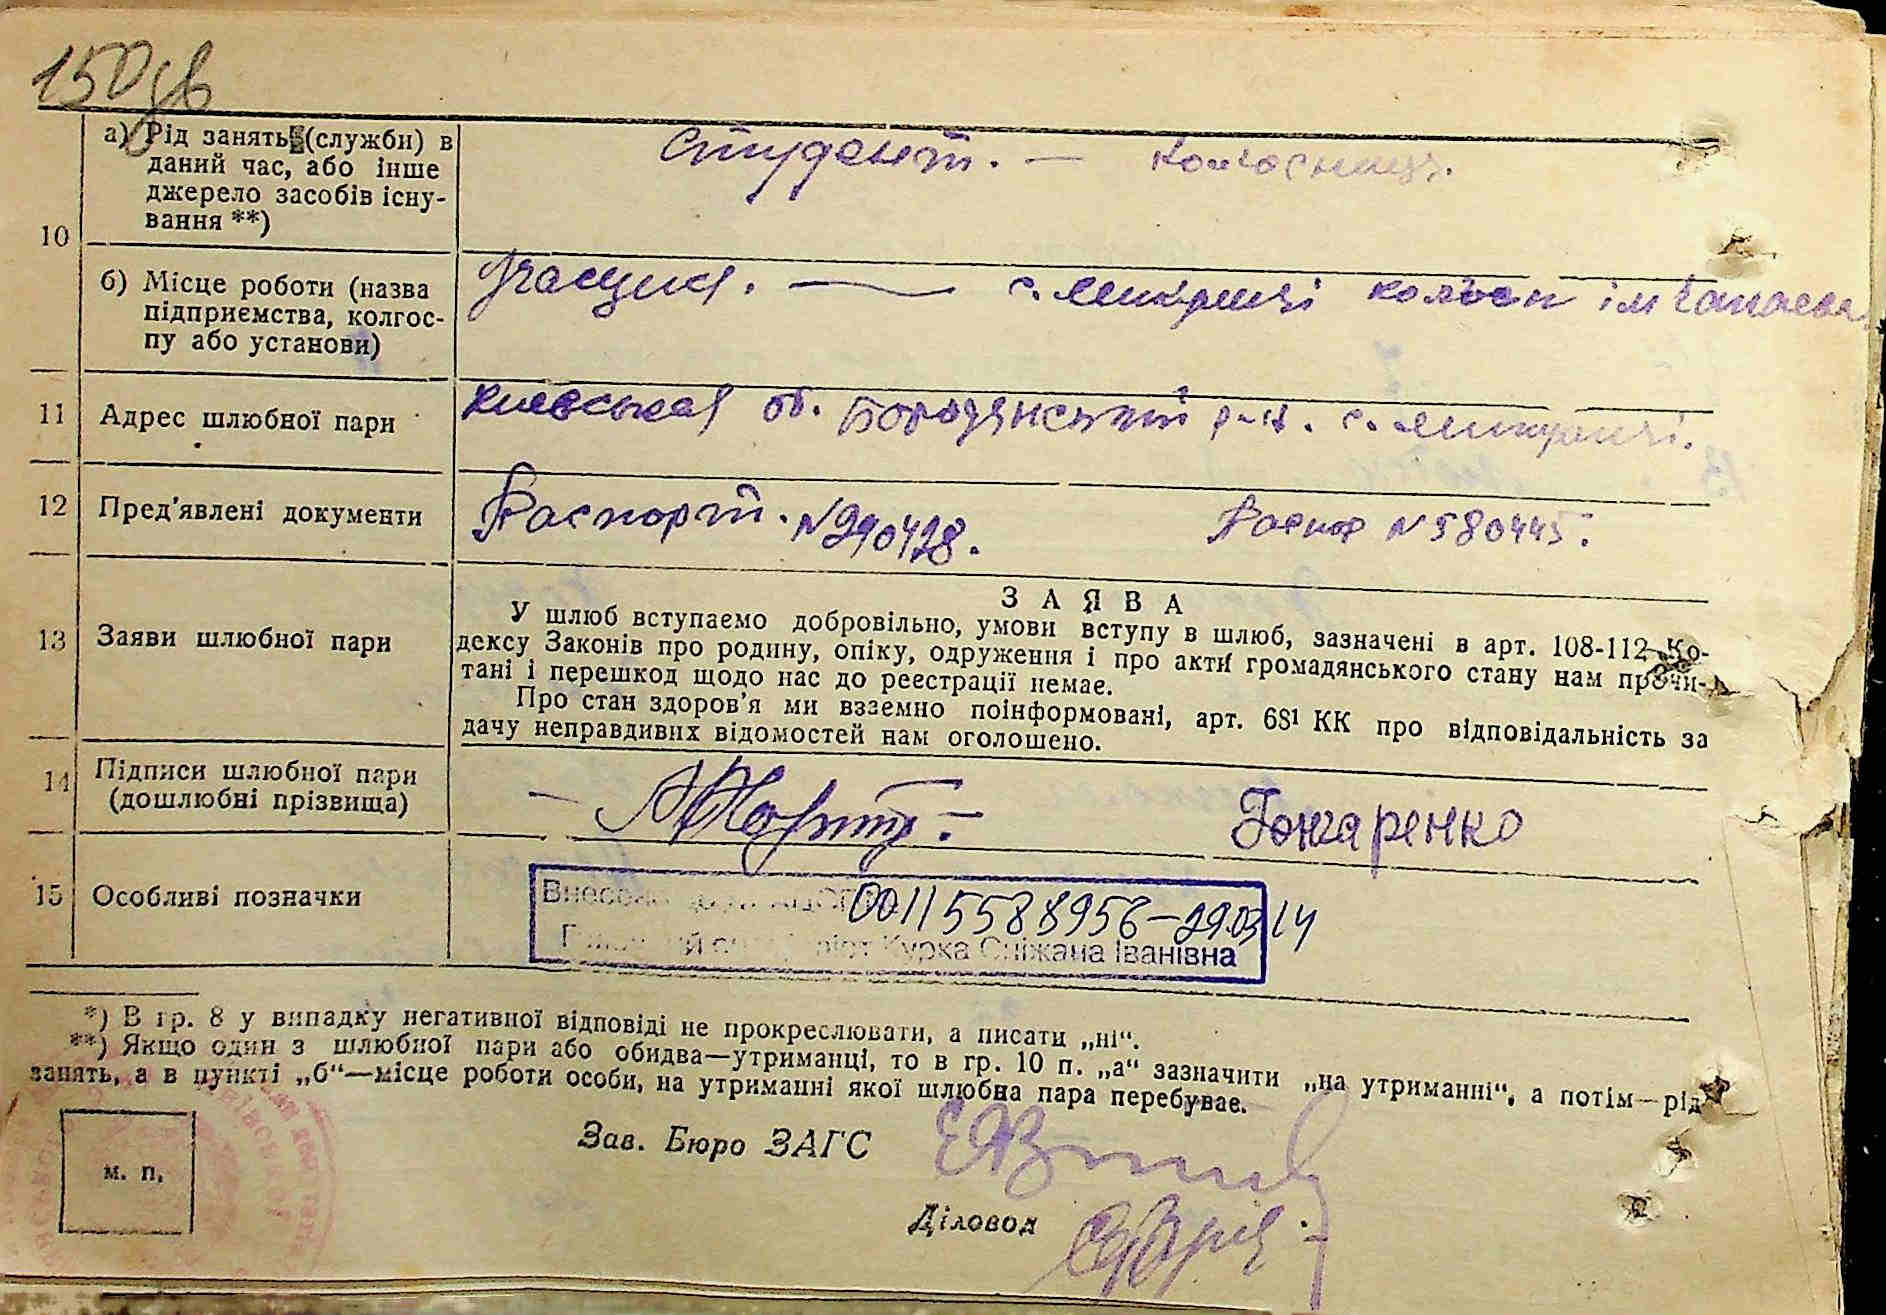 150 зв
10
а) Рід занять (служби) в
даний час, або інше
джерело засобів існу-
вання **)
Студент. — колгосниця.
б) Місце роботи (назва
підприємства, колгос-
пу або установи)
Учащийся. — с. Микуличі колгосп ім Чапаєва
11
Адрес шлюбної пари
Киевськая об. Бородянський р-н. с. Микуличі.
12
Пред'явлені документи
Паспорт. № 290428.
Паспор № 580445.
13
Заяви шлюбної пари
ЗАЯВА
У шлюб вступаємо добровільно, умови вступу в шлюб, зазначені в арт. 108-112 Ко-
дексу Законів про родину, опіку, одруження і про акти громадянського стану нам прочи-
тані і перешкод щодо нас до реєстрації немає.
Про стан здоров'я ми взаємно поінформовані, арт. 68¹ КК про відповідальність за
дачу неправдивих відомостей нам оголошено.
14
Підписи шлюбної пари
(дошлюбні прізвища)
Гончаренко
15
Особливі позначки
Внесено до 00115588956 – 29.03.14
Курка Сніжана Іванівна
*) В гр. 8 у випадку негативної відповіді не прокреслювати, а писати „ні“.
**) Якщо один з шлюбної пари або обидва—утриманці, то в гр. 10 п. „а“ зазначити „на утриманні“, а потім—рід
занять, а в пункті „б“—місце роботи особи, на утриманні якої шлюбна пара перебуває.
м. п.
Зав. Бюро ЗАГС
Діловод